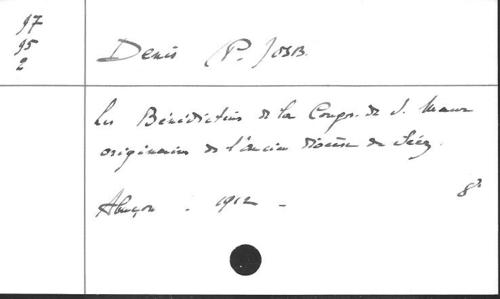 97
95
2
Denis (P.) OSB.
Les Bénédictins de la Congr. de S. Maur
originaires de l'ancien diocèse de Séez.
Alençon - 1912 -
8°